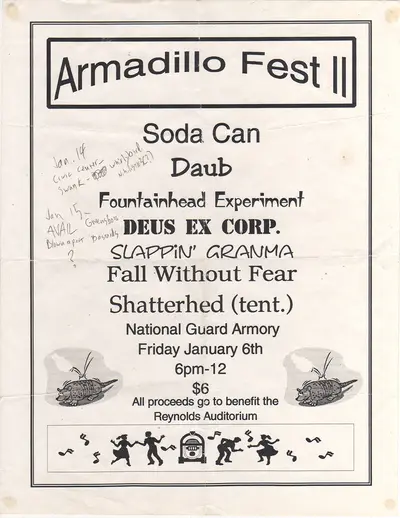 Armadillo Fest II
Soda Can
Daub
Fountainhead Experiment
DEUS EX CORP.
SLAPPiN' GRANMA
Fall Without Fear
Shatterhed (tent.)
National Guard Armory
Friday January 6th
6pm-12
$6
All proceeds go to benefit the
Reynolds Auditorium
Jan. 14
Civic center
Swank -
Jan 15 -
AVAIL
?